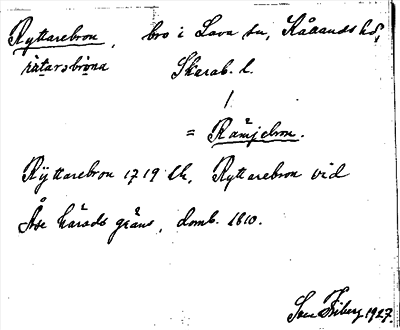 Ryttarebron, bro i Lava sn, Kållands hd,
rìtarsbrona Skarab. l.
/
= Rämjebron.
Rÿttarebron 1719 Lk, Ryttarebron vid
Åse härads gräns, domb. 1810.
Sven Friberg 1927.